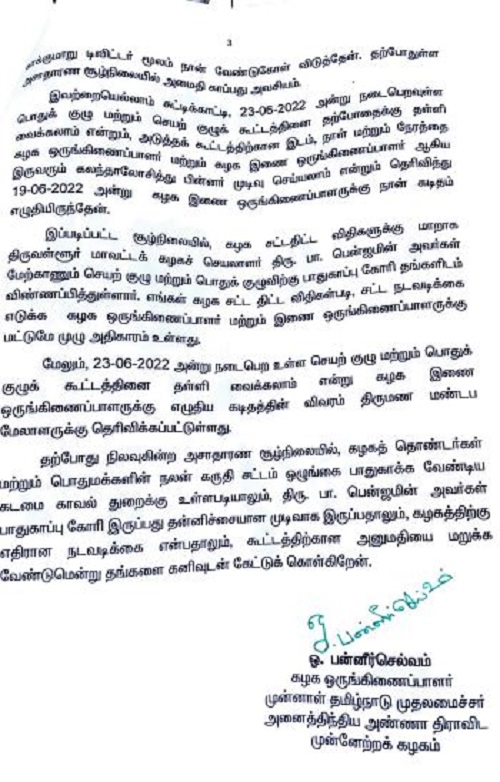 3
டிவிட்டர் மூலம் நான் வேண்டுகோள் விடுத்தேன். தற்போதுள்ள
அசாதாரண சூழ்நிலையில் அமைதி காப்பது அவசியம்.
இவற்றையெல்லாம் சுட்டிக்காட்டி, 23-06-2022 அன்று நடைபெறவுள்ள
பொதுக் குழு மற்றும் செயற் குழுக் கூட்டத்தினை தற்போதைக்கு தள்ளி
வைக்கலாம் என்றும், அடுத்தக் கூட்டத்திற்கான இடம், நாள் மற்றும் நேரத்தை
கழக ஒருங்கிணைப்பாளர் மற்றும் கழக இணை ஒருங்கிணைப்பாளர் ஆகிய
இருவரும் கலந்தாலோசித்து பின்னர் முடிவு செய்யலாம் என்றும் தெரிவித்து
19-06-2022 அன்று கழக இணை ஒருங்கிணைப்பாளருக்கு நான் கடிதம்
எழுதியிருந்தேன்.
இப்படிப்பட்ட சூழ்நிலையில், கழக சட்டதிட்ட விதிகளுக்கு மாறாக
திருவள்ளூர் மாவட்டக் கழகச் செயலாளர் திரு. பா. பென்ஜமின் அவர்கள்
மேற்காணும் செயற் குழு மற்றும் பொதுக் குழுவிற்கு பாதுகாப்பு கோரி தங்களிடம்
விண்ணப்பித்துள்ளார். எங்கள் கழக சட்ட திட்ட விதிகள்படி, சட்ட நடவடிக்கை
எடுக்க கழக ஒருங்கிணைப்பாளர் மற்றும் இணை ஒருங்கிணைப்பாளருக்கு
மட்டுமே முழு அதிகாரம் உள்ளது.
மேலும், 23-06-2022 அன்று நடைபெற உள்ள செயற் குழு மற்றும் பொதுக்
குழுக் கூட்டத்தினை தள்ளி வைக்கலாம் என்று கழக இணை
ஒருங்கிணைப்பாளருக்கு எழுதிய கடிதத்தின் விவரம் திருமண மண்டப
மேலாளருக்கு தெரிவிக்கப்பட்டுள்ளது.
தற்போது நிலவுகின்ற அசாதாரண சூழ்நிலையில், கழகத் தொண்டர்கள்
மற்றும் பொதுமக்களின் நலன் கருதி சட்டம் ஒழுங்கை பாதுகாக்க வேண்டிய
கடமை காவல் துறைக்கு உள்ளபடியாலும், திரு. பா. பென்ஜமின் அவர்கள்
பாதுகாப்பு கோரி இருப்பது தன்னிச்சையான முடிவாக இருப்பதாலும், கழகத்திற்கு
எதிரான நடவடிக்கை என்பதாலும், கூட்டத்திற்கான அனுமதியை மறுக்க
வேண்டுமென்று தங்களை கனிவுடன் கேட்டுக் கொள்கிறேன்.
ஓ. பன்னீர்செல்வம்
ஓ. பன்னீர்செல்வம்
கழக ஒருங்கிணைப்பாளர்
முன்னாள் தமிழ்நாடு முதலமைச்சர்
அனைத்திந்திய அண்ணா திராவிட
முன்னேற்றக் கழகம்